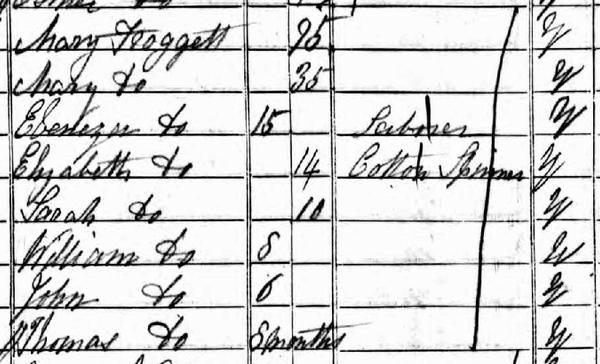 Mary Hoggett 75 y
Mary do 35 y
Ebenezer do 15 Laborer y
Elizabeth do 14 Cotton Spinner y
Sarah do 10 y
William do 8 y
John do 6 y
Thomas do 8 months y